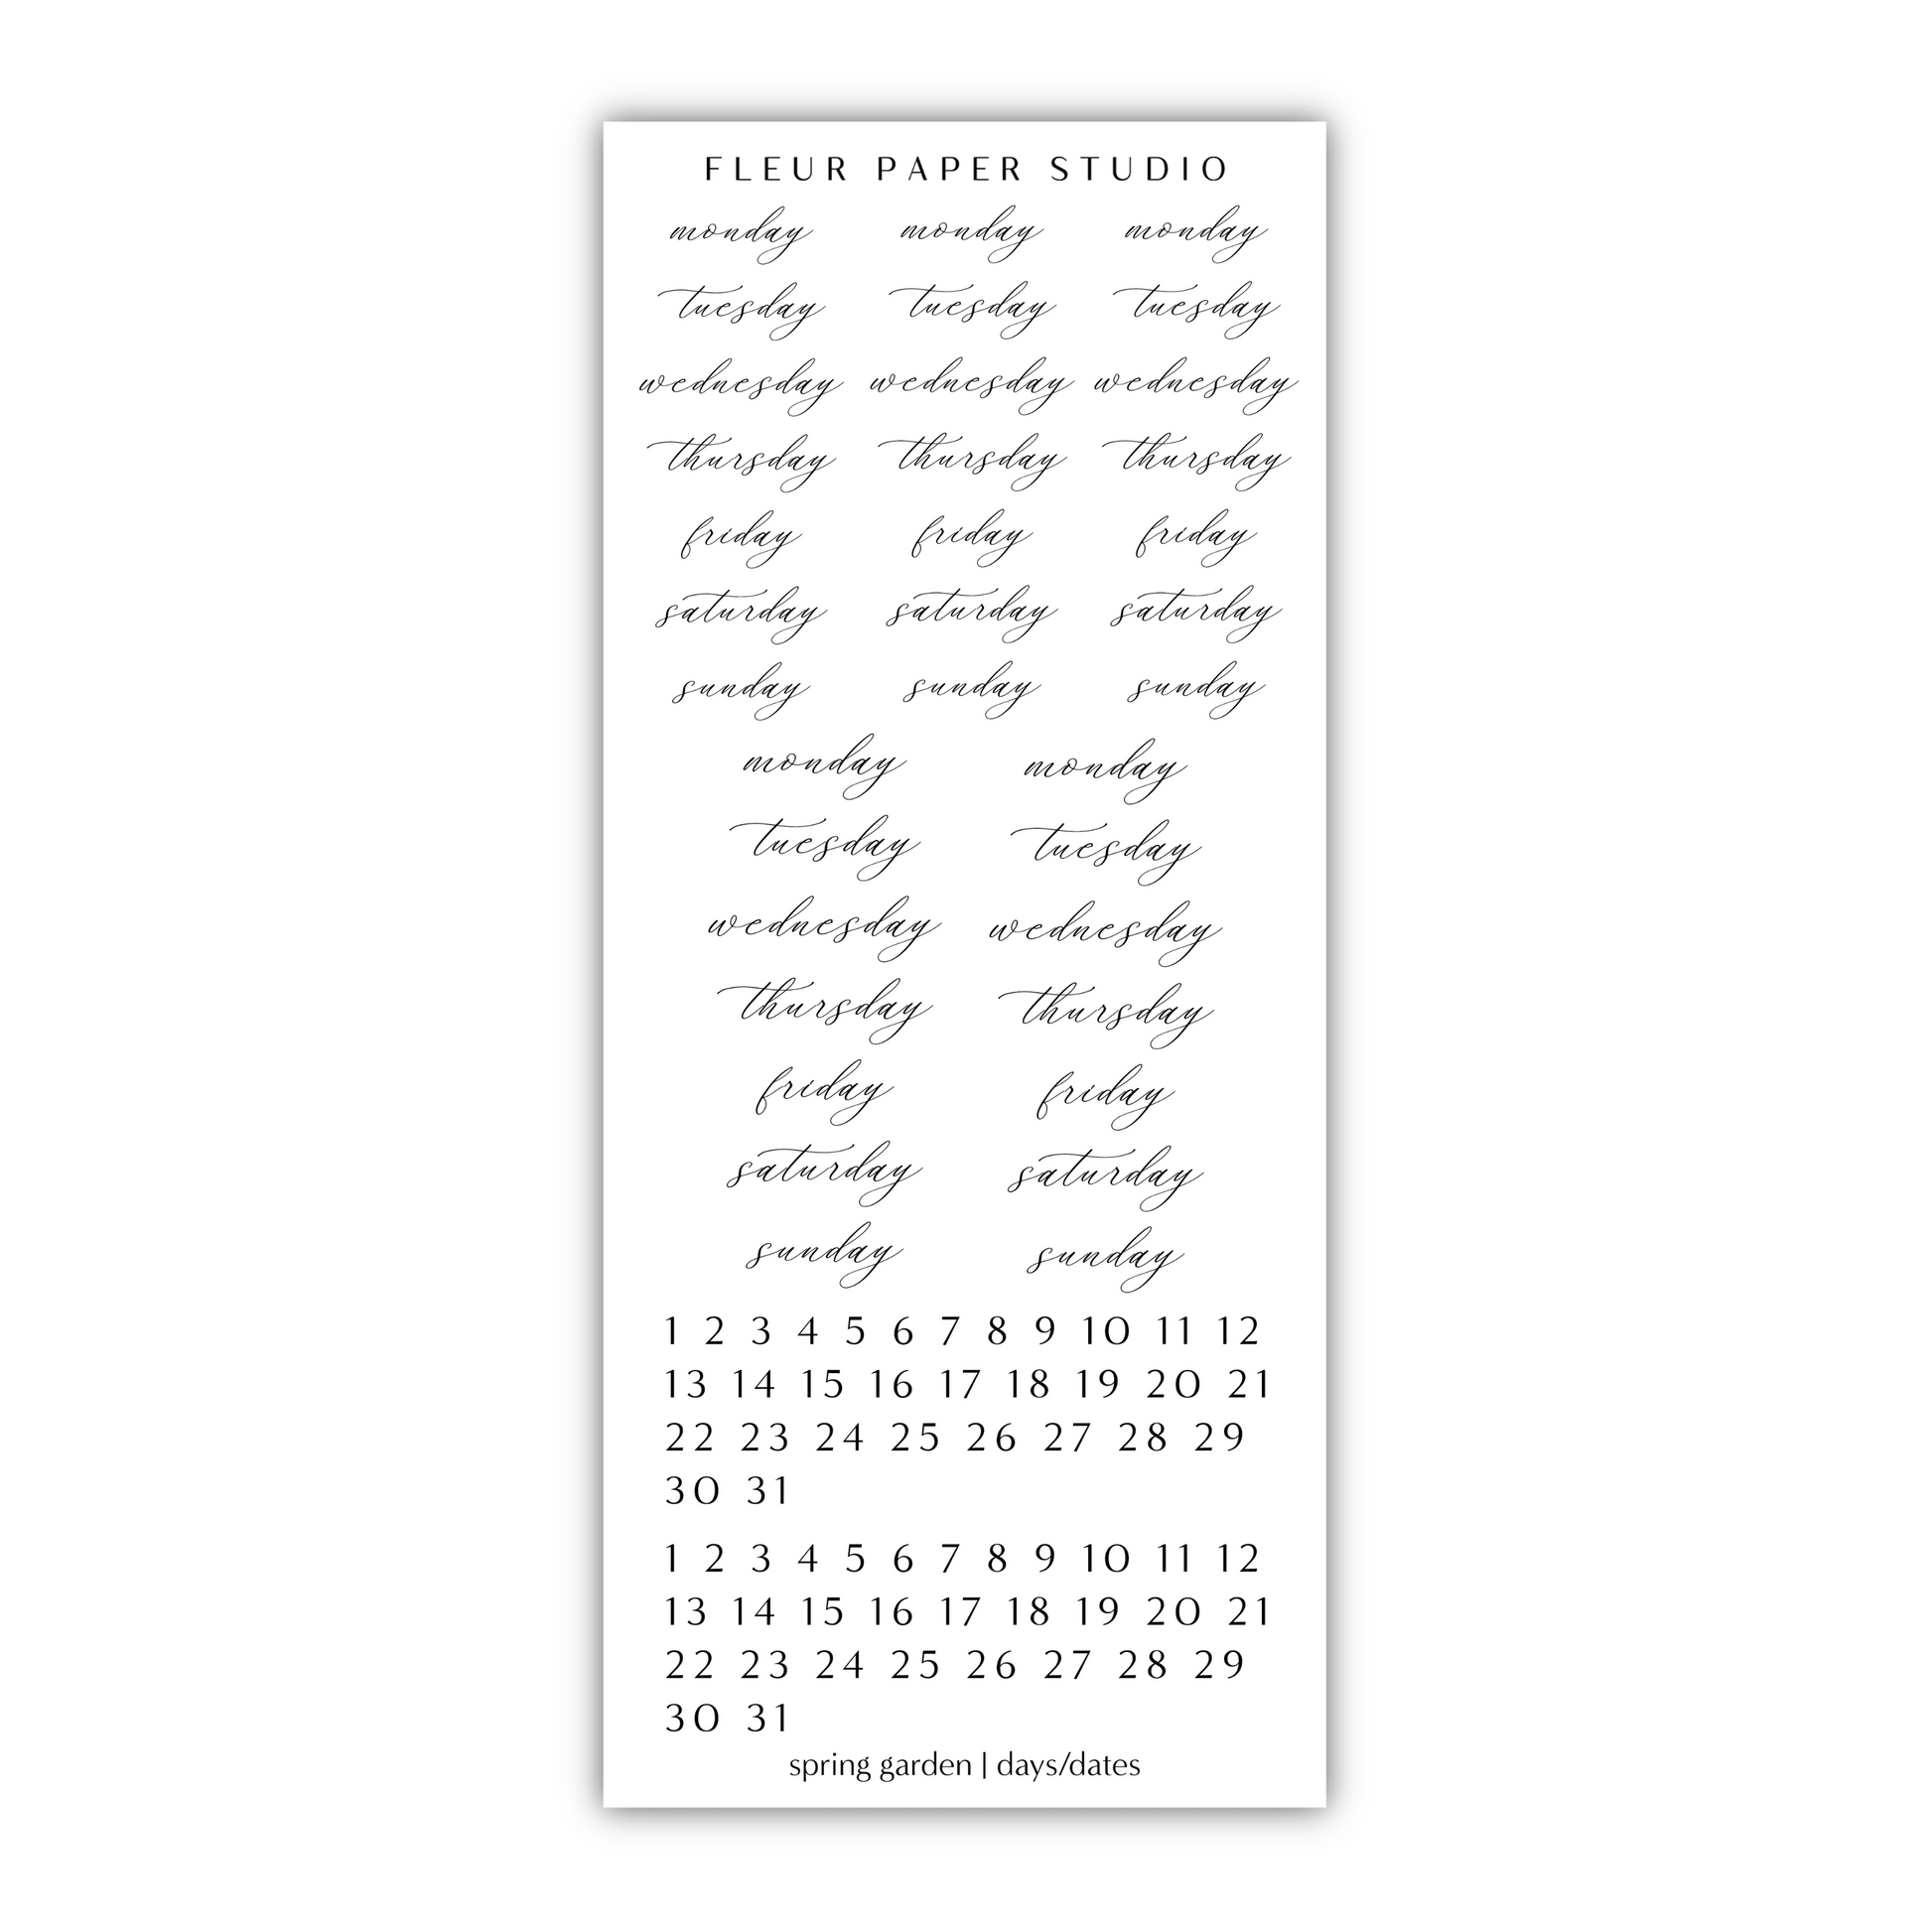 FLEUR PAPER STUDIO
monday monday monday
tuesday tuesday tuesday
wednesday wednesday wednesday
thursday thursday thursday
friday friday friday
saturday saturday saturday
sunday sunday sunday
monday monday
tuesday tuesday
wednesday wednesday
thursday thursday
friday friday
saturday saturday
sunday sunday
1 2 3 4 5 6 7 8 9 10 11 12
13 14 15 16 17 18 19 20 21
22 23 24 25 26 27 28 29
30 31
1 2 3 4 5 6 7 8 9 10 11 12
13 14 15 16 17 18 19 20 21
22 23 24 25 26 27 28 29
30 31
spring garden | days/dates